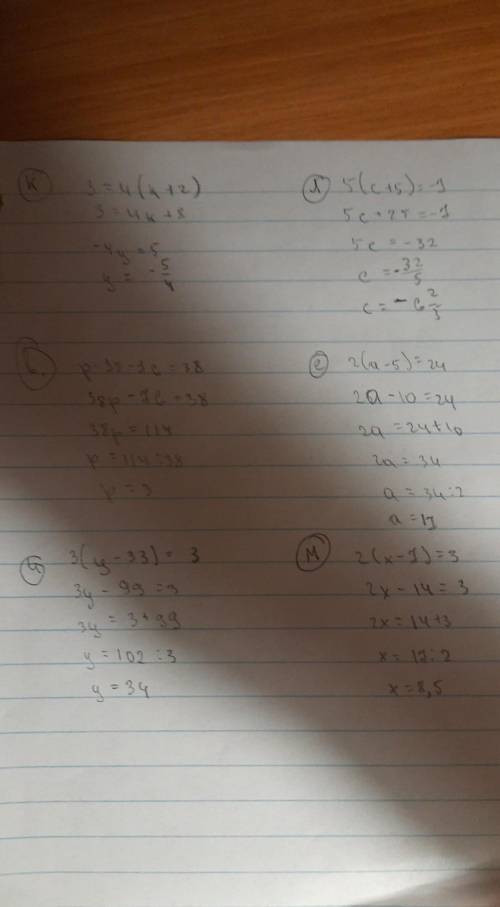 К 3 = 4(x+2)
3 = 4x+8
-4y = 5
y = -5/4
Л 5(c+5) = -1
5c + 25 = -1
5c = -32
c = -32/5
38p = 114
p = 114 : 38
p = 3
е 2(a-5) = 24
2a - 10 = 24
2a = 24+10
2a = 34
a = 34 : 2
a = 17
3(y-33) = 3
3y - 99 = 3
3y = 3+99
y = 102 : 3
y = 34
М 2(x-7) = 3
2x - 14 = 3
2x = 14+3
x = 17 : 2
x = 8,5